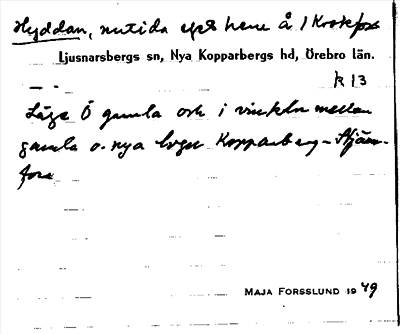 Hyddan, nutida eget hem å 1 Krokfors
Ljusnarsbergs sn, Nya Kopparbergs hd, Örebro län.
k 13
Läge Ö gamla och i vinkeln mellan
gamla o. nya vägen Kopparberg – Stjärn-
fors
MAJA FORSSLUND 1949